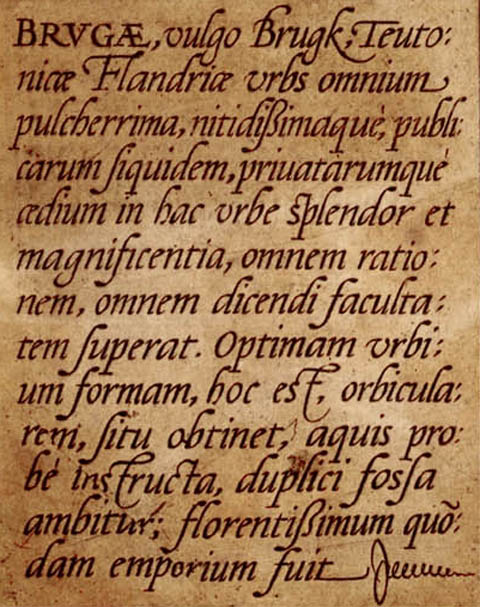 BRVGÆ, vulgo Brugk; Teuto:
nicæ Flandriæ vrbs omnium
pulcherrima, nitidißimaque; publi:
carum ſiquidem, priuatarumque
ædium in hac vrbe ſplendor et
magnificentia, omnem ratio:
nem, omnem dicendi faculta:
tem ſuperat. Optimam vrbi:
um formam, hoc eſt, orbicula:
rem, ſitu obtinet, aquis pro:
bè inſtructa, duplici foſſa
ambitur; florentißimum quõ:
dam emporium fuit